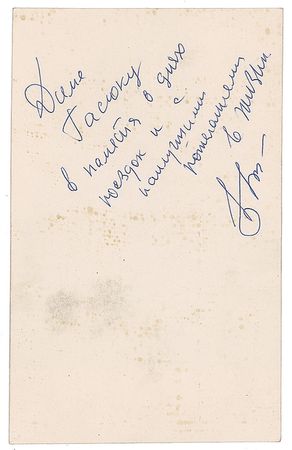 Диме
Гасюку
в память о днях
поездок и с
наилучшими
пожеланиями
в жизни